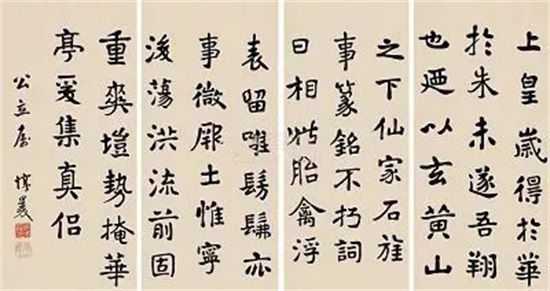 上皇歲得於華
於朱未遂吾翔
也迺以玄黃山
之下仙家石旌
事篆銘不朽詞
曰相此胎禽浮
表留唯髣髴亦
事微厥土惟寧
後蕩洪流前固
重爽塏勢掩華
亭爰集真侶
公立